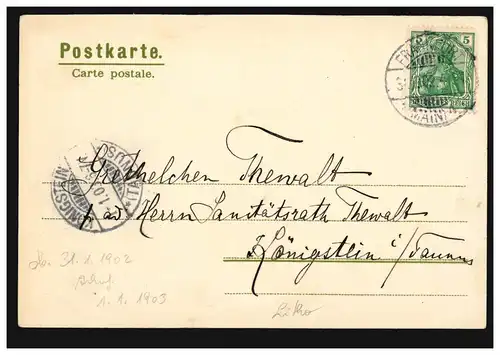 Postkarte.
Carte postale.
5
FRANKFURT
(MAIN)
Grethelchen Thewalt
p ad Herrn Sanitätsrath Thewalt
Königstein i/Taunus
31. 1902
1. 1. 1903